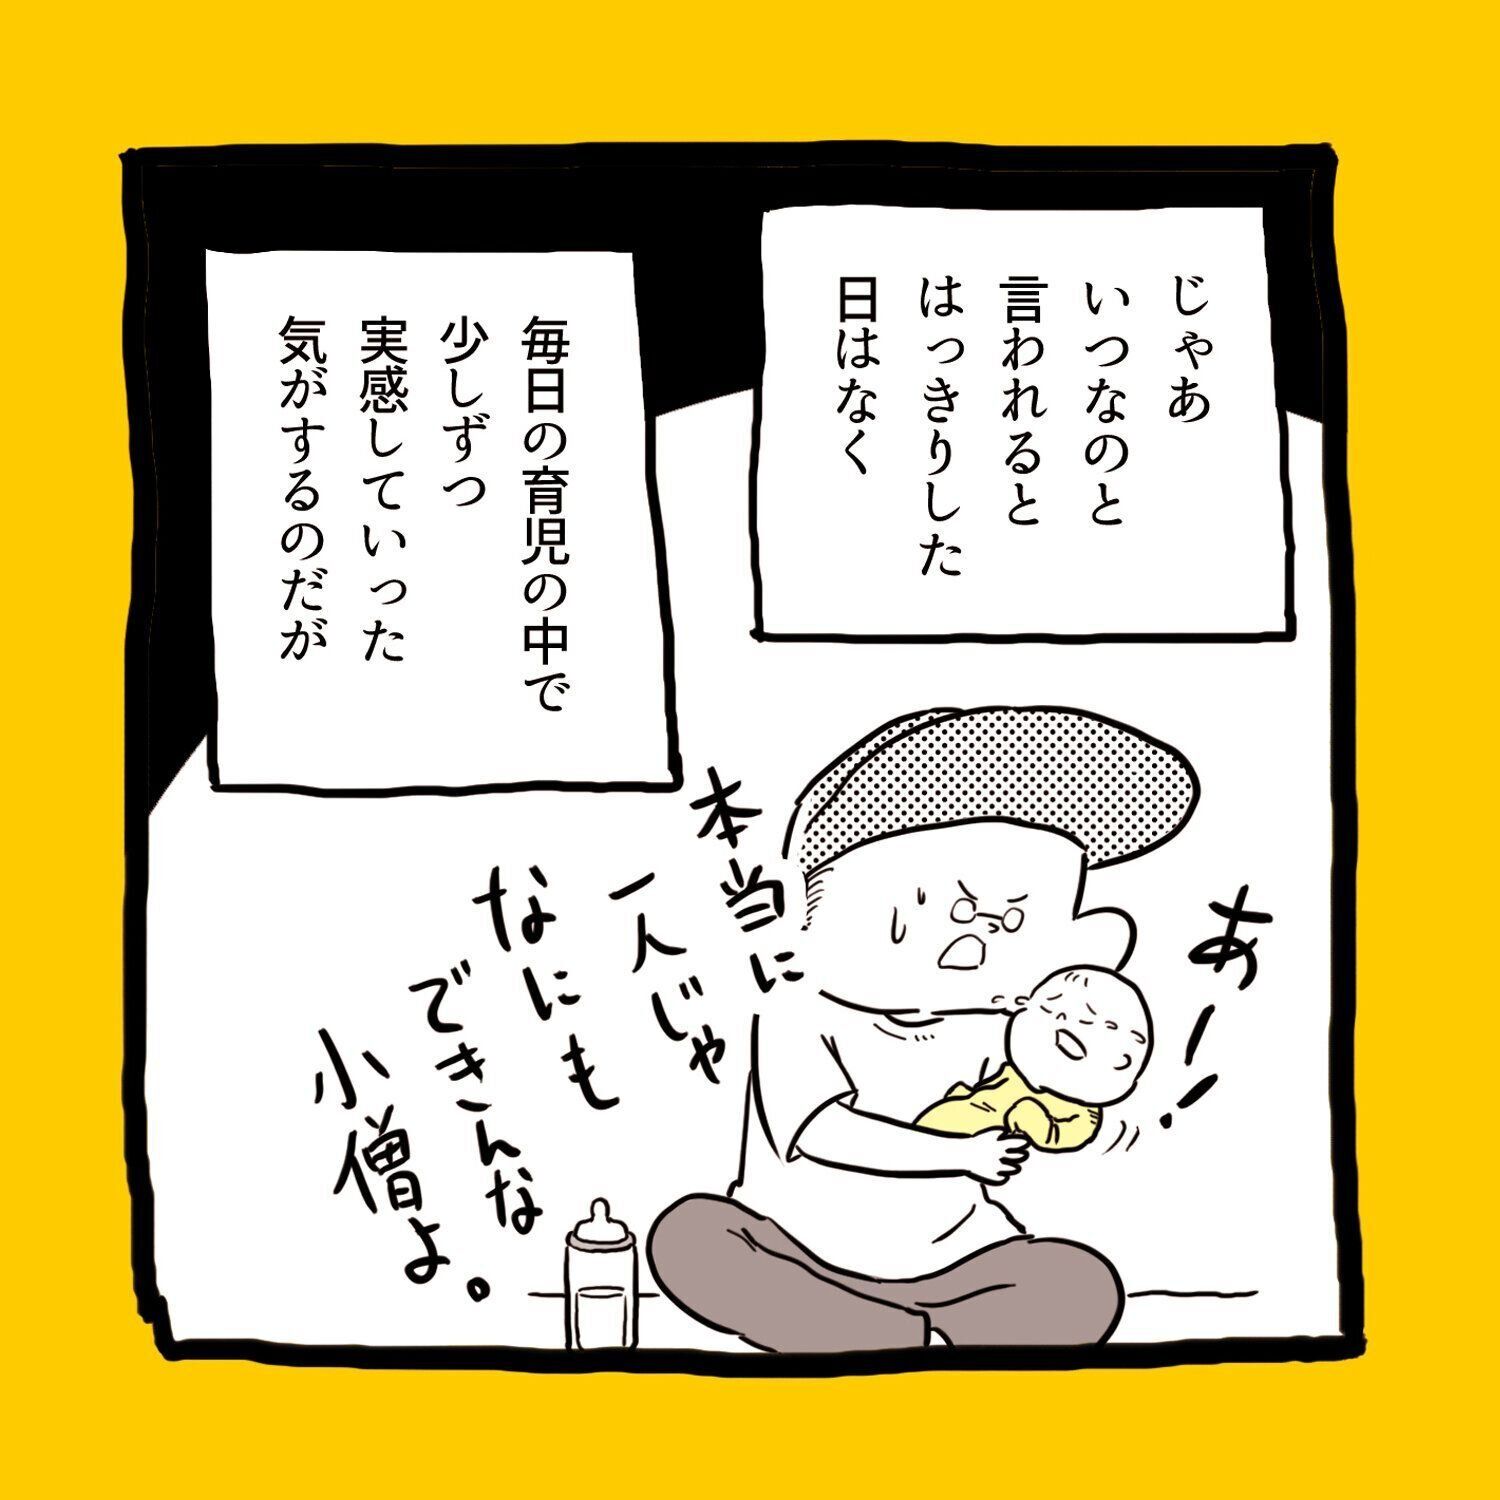 じゃあ
いつなのと
言われると
はっきりした
日はなく
毎日の育児の中で
少しずつ
実感していった
気がするのだが
あー！
本当に
一人じゃ
なにも
できんな
小僧よ。